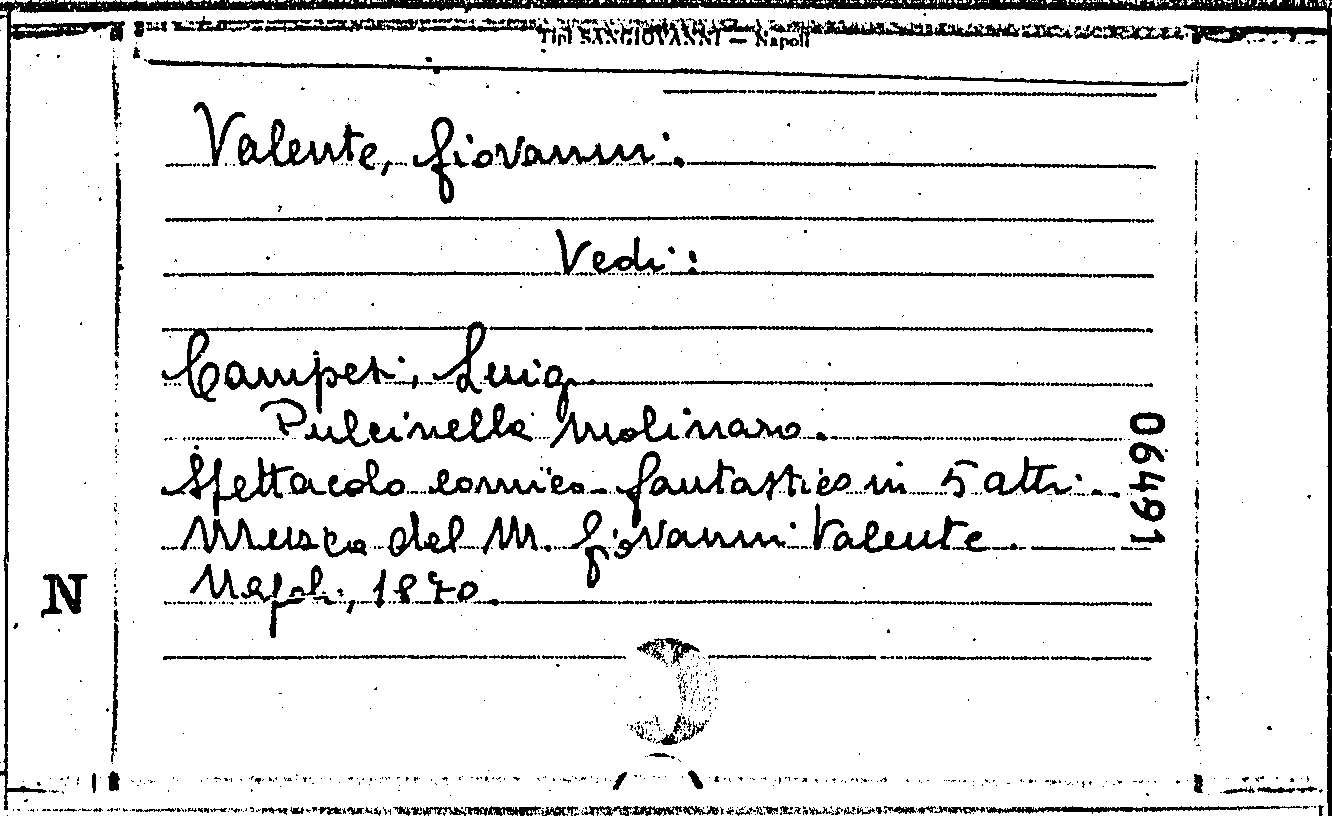 Tipi SANGIOVANNI — Napoli
Valente, Giovanni.
Vedi:
Campesi, Luigi
Pulcinella Molinaro.
Spettacolo comico-fantastico in 5 atti.
Musica del M. Giovanni Valente.
Napoli, 1870.
N
06491